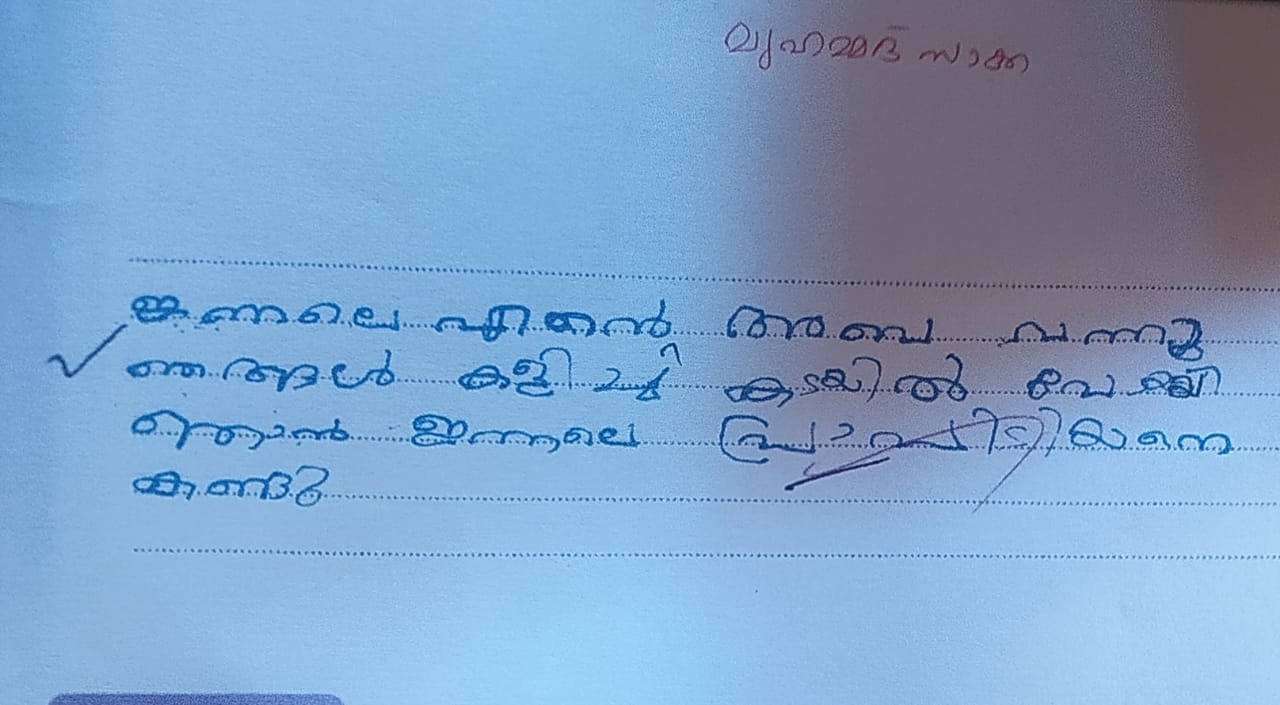 മുഹമ്മദ് സാക്ക
ഇന്നലെ എന്റെ വന്നു
ഞങ്ങൾ കളിച്ചു കടയിൽ പോയി
ഞാൻ ഇന്നലെ
കണ്ടു